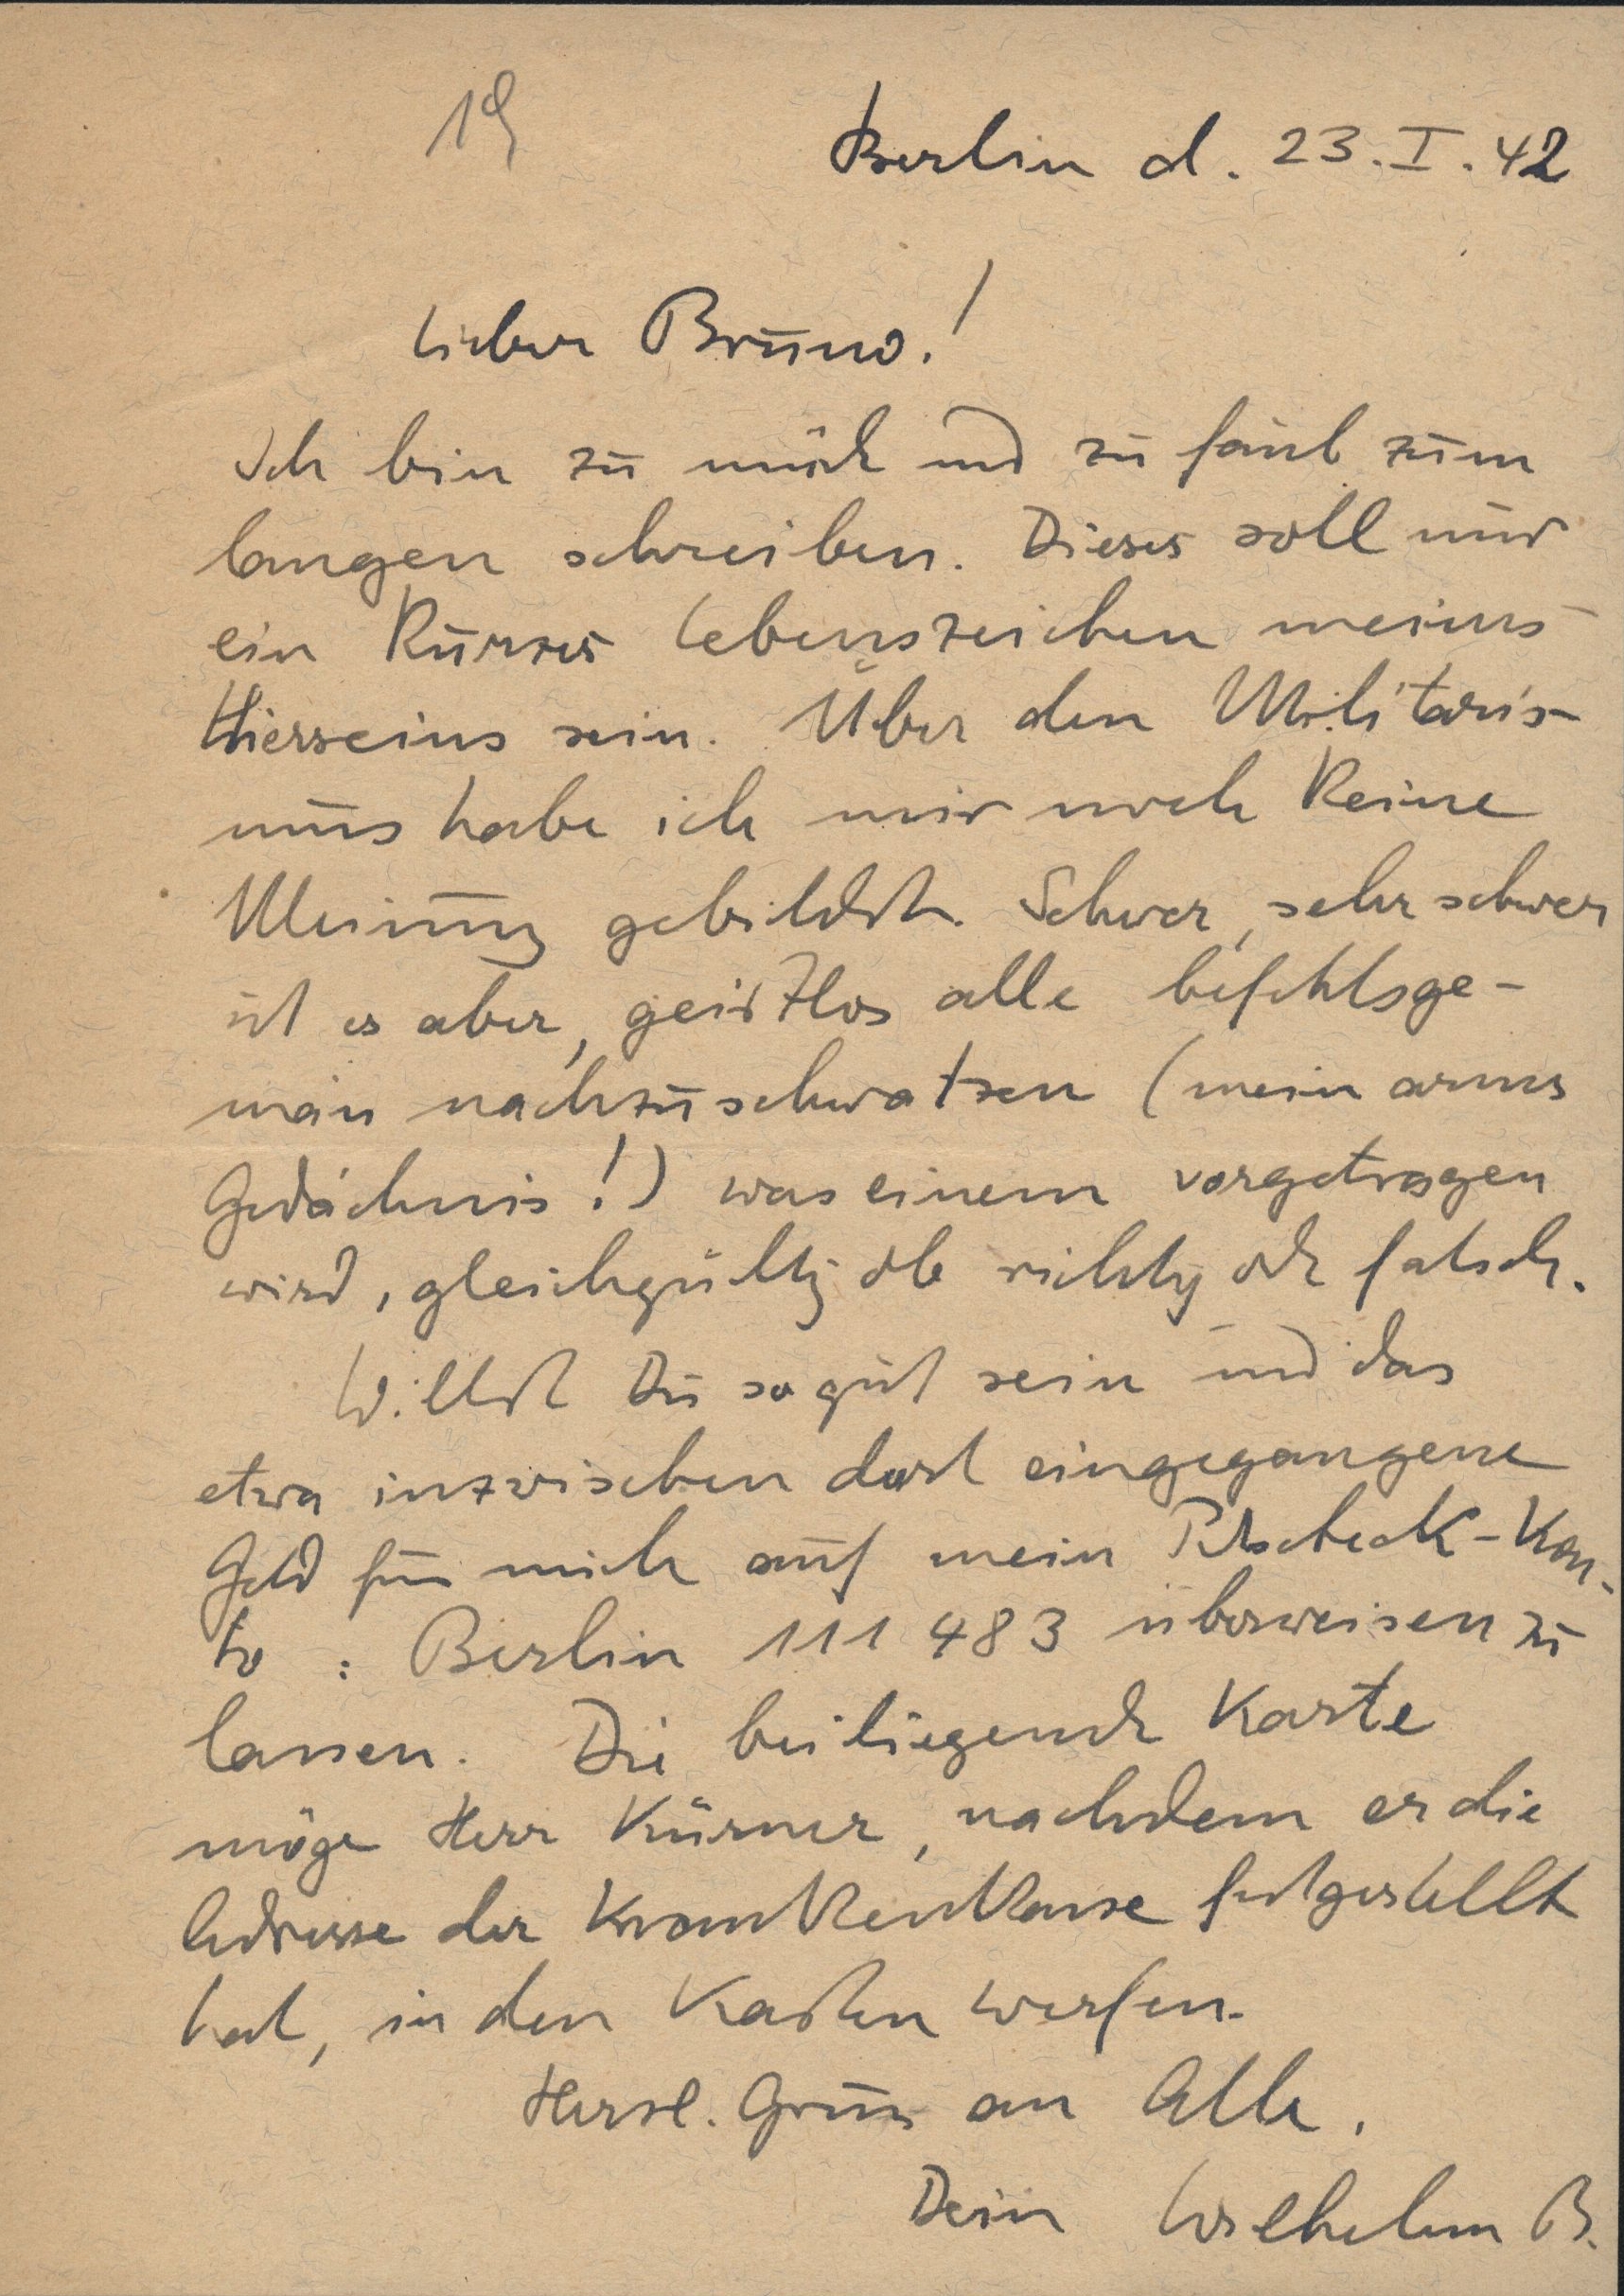 19
Berlin d. 23. I. 42
Lieber Bruno!
Ich bin zu müde und zu faul zum
langen schreiben. Dieses soll nur
ein kurzes Lebenszeichen meines
Hierseins sein. Über den Militaris-
mus habe ich mir noch keine
Meinung gebildet. Schwer, sehr schwer
ist es aber, geistlos alle befehlsge-
mäß nachzuschwatzen (mein armes
Gedächnis!) was einem vorgetragen
wird, gleichgültig ob richtig oder falsch.
Willst Du so gut sein und das
etwa inzwischen dort eingegangene
Geld für mich auf mein Pstscheck-Kon-
to : Berlin 111 483 überweisen zu
lassen. Die beiliegende Karte
möge Herr Kürner, nachdem er die
Adresse der Krankenkasse festgestellt
hat, in den Kasten werfen.
Herzl. Gruß an Alle.
Dein Wilhelm B.